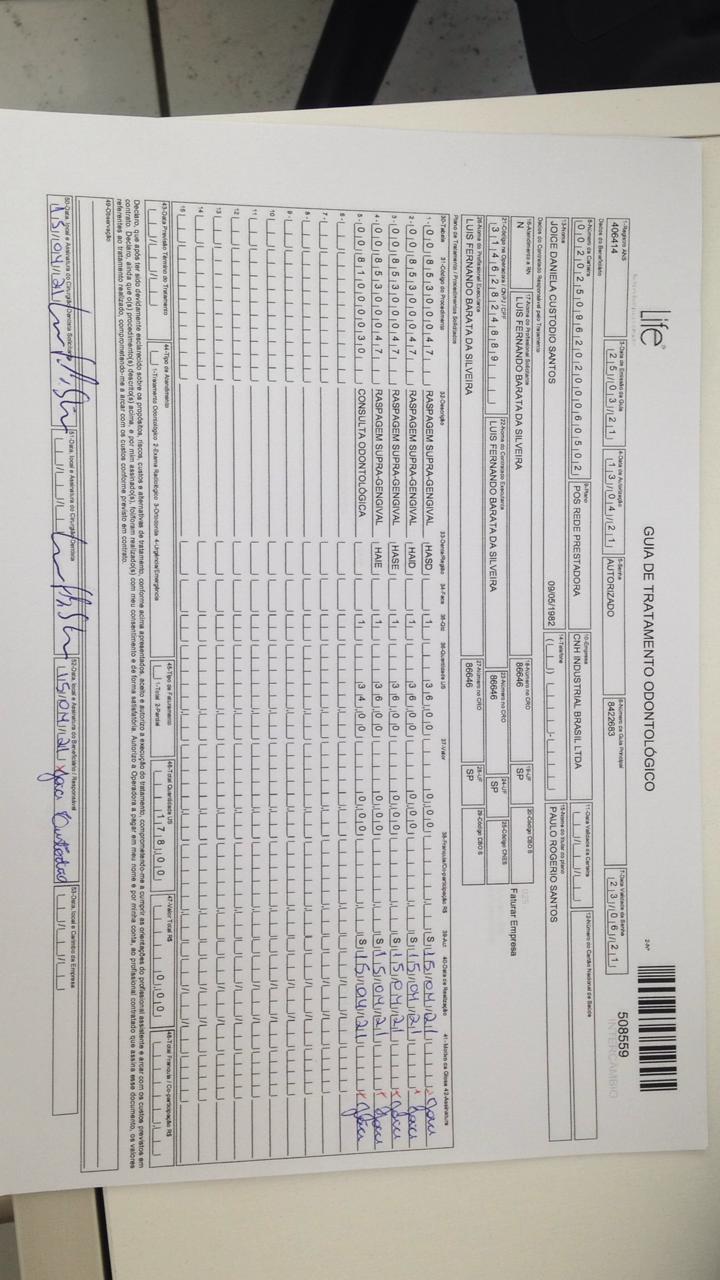 life
GUIA DE TRATAMENTO ODONTOLÓGICO
2-Nº
508559
INTERCÂMBIO
1-Registro ANS 3-Data de Emissão da Guia 4-Data de Autorização 5-Senha 6-Número da Guia Principal 7-Data Validade da Senha
406414 25/03/21 13/04/21 AUTORIZADO 8422683 23/06/21
Dados do Beneficiário
8-Número da Carteira 9-Plano 10-Empresa 11-Data Validade da Carteira 12-Número do Cartão Nacional de Saúde
00202509620200060502 POS REDE PRESTADORA CNH INDUSTRIAL BRASIL LTDA
13-Nome 14-Telefone 15-Nome do titular do plano
JOICE DANIELA CUSTODIO SANTOS 09/05/1982 PAULO ROGERIO SANTOS
Dados do Contratado Responsável pelo Tratamento
16-Atendimento a RN 17-Nome do Profissional Solicitante 18-Número no CRO 19-UF 20-Código CBO S
N LUIS FERNANDO BARATA DA SILVEIRA 86646 SP
21-Código na Operadora / CNPJ / CPF 22-Nome do Contratado Executante 23-Número no CRO 24-UF 25-Código CNES
31462824889 LUIS FERNANDO BARATA DA SILVEIRA 86646 SP
Faturar Empresa
26-Nome do Profissional Executante 27-Número no CRO 28-UF 29-Código CBO S
LUIS FERNANDO BARATA DA SILVEIRA 86646 SP
Plano de Tratamento / Procedimentos Solicitados
30-Tabela 31-Código do Procedimento 32-Descrição 33-Dente/Região 34-Face 35-Qtd 36-Quantidade US 37-Valor 38-Franquia/Co-participação R$ 39-Aut 40-Data de Realização 41-Motivo da Glosa 42-Assinatura
1- 00 85300047 RASPAGEM SUPRA-GENGIVAL HASD 1 36,00 0,00 S 15/04/21
2- 00 85300047 RASPAGEM SUPRA-GENGIVAL HAID 1 36,00 0,00 S 15/04/21
3- 00 85300047 RASPAGEM SUPRA-GENGIVAL HASE 1 36,00 0,00 S 15/04/21
4- 00 85300047 RASPAGEM SUPRA-GENGIVAL HAIE 1 36,00 0,00 S 15/04/21
5- 00 81000030 CONSULTA ODONTOLÓGICA 1 34,00 0,00 S 15/04/21
6-
7-
8-
9-
10
11
12
13
14
15
43-Data Previsão Término do Tratamento 44-Tipo de Atendimento 45-Tipo de Faturamento 46-Total Quantidade US 47-Valor Total R$ 48-Total Franquia / Co-participação R$
1-Tratamento Odontológico 2-Exame Radiológico 3-Ortodontia 4-Urgência/Emergência 1-Total 2-Parcial 178,00 0,00
Declaro, que após ter sido devidamente esclarecido sobre os propósitos, riscos, custos e alternativas de tratamento, conforme acima apresentados, aceito e autorizo a execução do tratamento, comprometendo-me a cumprir as orientações do profissional assistente e arcar com os custos previstos em
contrato. Declaro, ainda que o(s) procedimento(s) descrito(s) acima, e por mim assinado(s), foi/foram realizado(s) com meu consentimento e de forma satisfatória. Autorizo a Operadora a pagar em meu nome e por minha conta, ao profissional contratado que assina esse documento, os valores
referentes ao tratamento realizado, comprometendo-me a arcar com os custos conforme previsto em contrato.
49-Observação
50-Data, local e Assinatura do Cirurgião-Dentista Solicitante 51-Data, local e Assinatura do Cirurgião-Dentista 52-Data, local e Assinatura do Beneficiário / Responsável 53-Data, local e Carimbo da Empresa
15/04/21 15/04/21